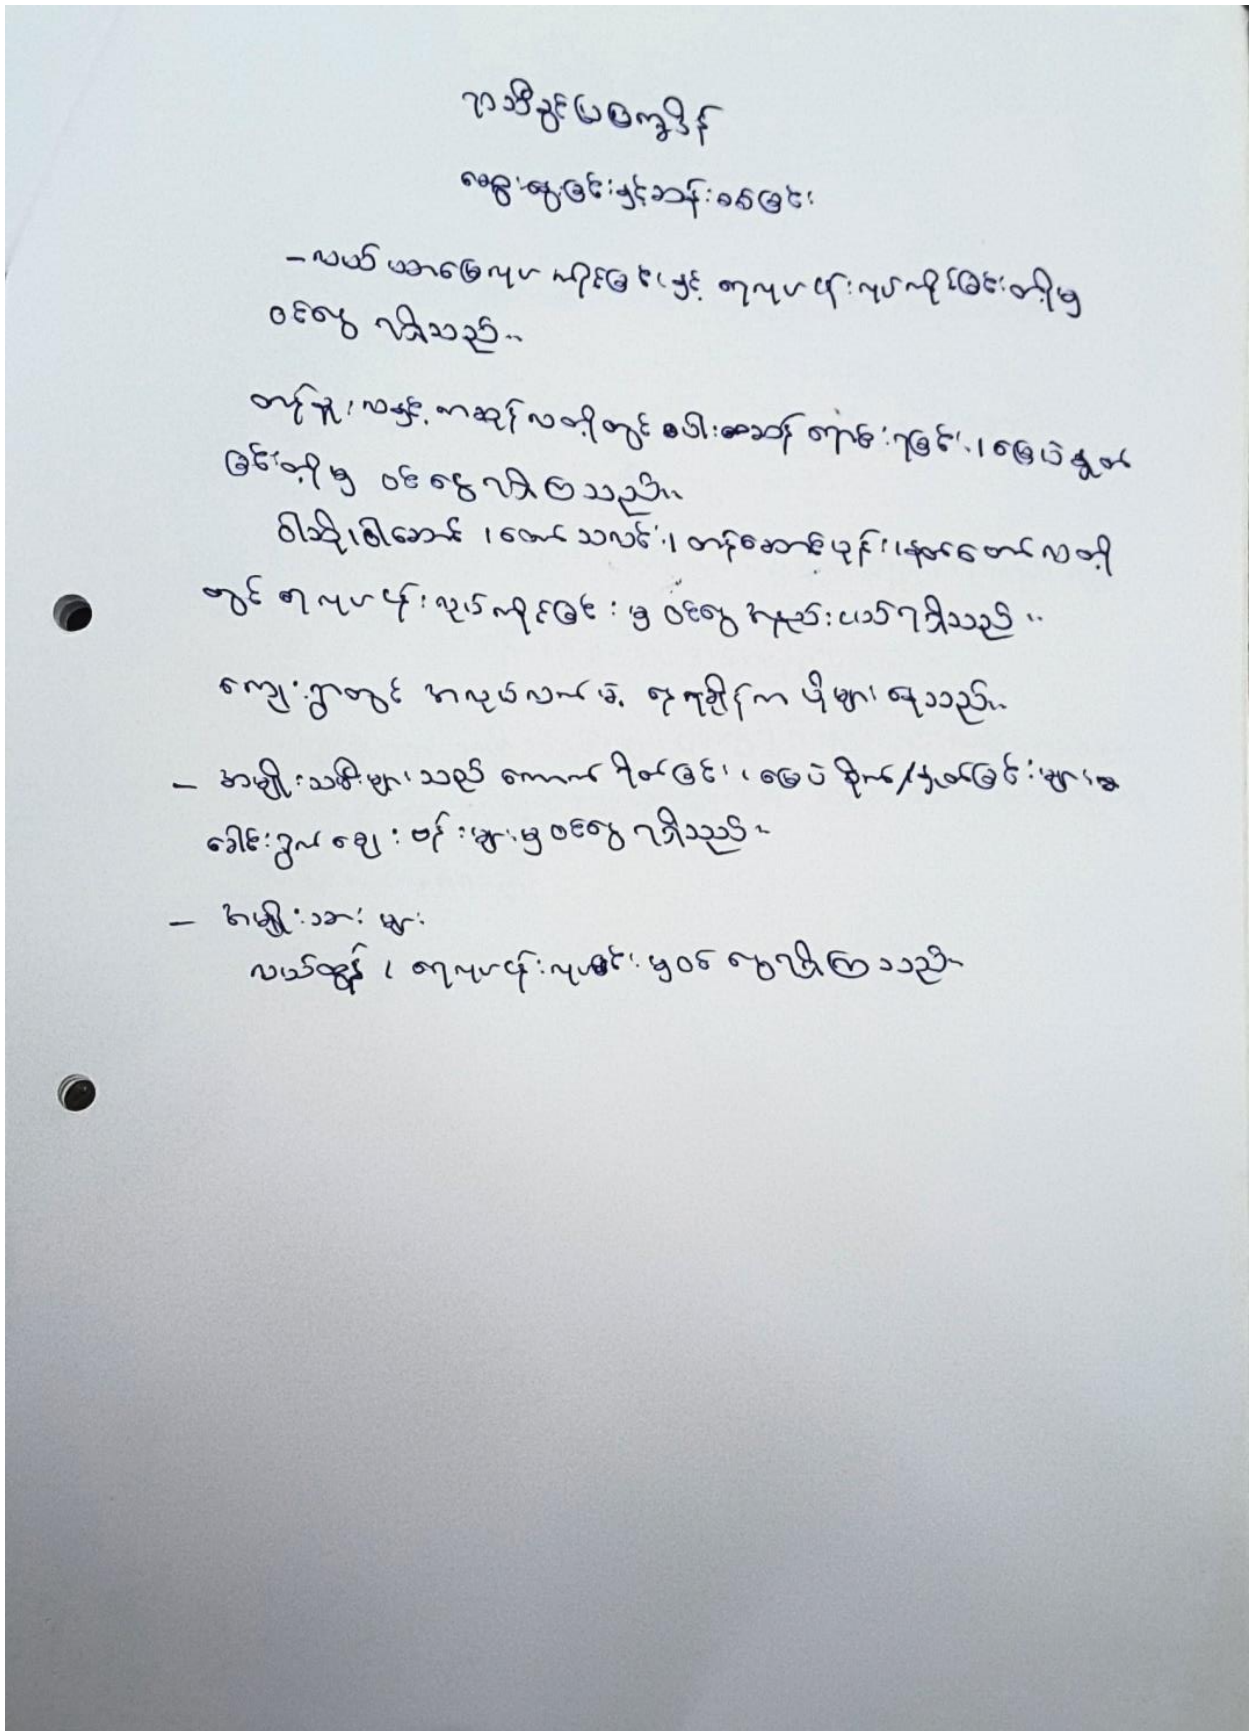 ရာသီခွင်ပြမြက္ခဒိန်
ဆွေးနွေးခြင်းနှင့်ဆန်းစစ်ခြင်း
- လယ်ယာမြေလုပ်ကိုင်ခြင်း၊ နှင့် ရေလုပ်ငန်းလုပ်ကိုင်ခြင်းတို့မှ
ဝင်ငွေ ရရှိသည်။
တန်ခူးလနှင့် ကဆုန်လတို့တွင် စပါးဆန် ရောင်းရခြင်း၊ မြေပဲနှုတ်
ခြင်းတို့မှ ဝင်ငွေရရှိကြသည်။
ဝါဆို၊ ဝါခေါင်၊ တော်သလင်း၊ တန်ဆောင်မုန်း၊ နတ်တော်လတို့
တွင် ရေလုပ်ငန်းလုပ်ကိုင်ခြင်းမှ ဝင်ငွေအနည်းငယ်ရရှိသည်။
ကျေးရွာတွင် အလုပ်လက်မဲ့ နေရချိန်က ပိုများနေသည်။
- အမျိုးသမီးများသည် ကောက်ရိတ်ခြင်း၊ မြေပဲစိုက်/နှုတ်ခြင်းများမှ
ခေါင်းရွက်ဈေးဗန်းများမှ ဝင်ငွေရရှိသည်။
- အမျိုးသားများ
လယ်ထွန်၊ ရေလုပ်ငန်းလုပ်ခြင်းမှ ဝင်ငွေရရှိကြသည်။